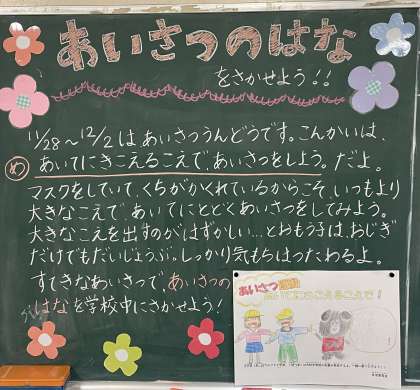 あいさつのはな
をさかせよう!!
11/28~12/2はあいさつうんどうです。こんかいは、
め あいてにきこえるこえで、あいさつをしよう。だよ。
マスクをしていて、くちがかくれているからこそ、いつもより
大きなこえで、あいてにとどくあいさつをしてみよう。
大きなこえを出すのがはずかしい…とおもう子は、おじぎ
だけでもだいじょうぶ。しっかり気もちはつたわるよ。
すてきなあいさつで、あいさつの
はなを学校中にさかせよう!
あいさつ運動
あいてにきこえるこえで!